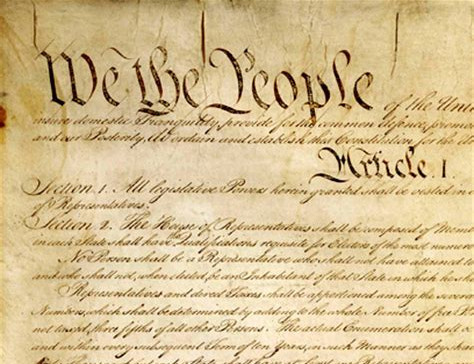 We the People of the Uni
insure domestic Tranquility, provide for the common defence, prom
and our Posterity, do ordain and establish this Constitution for the
Article. I.
Section. 1. All legislative Powers herein granted shall be vested in
of Representatives.
Section. 2. The House of Representatives shall be composed of Mem
in each State shall have Qualifications requisite for Electors of the most numer
No Person shall be a Representative who shall not have attained to
and who shall not, when elected, be an Inhabitant of that State in which he sh
Representatives and direct Taxes shall be apportioned among the seve
Numbers, which shall be determined by adding to the whole Number of free P
not taxed, three fifths of all other Persons. The actual Enumeration shall
and within every subsequent Term of ten Years, in such Manner as they sha